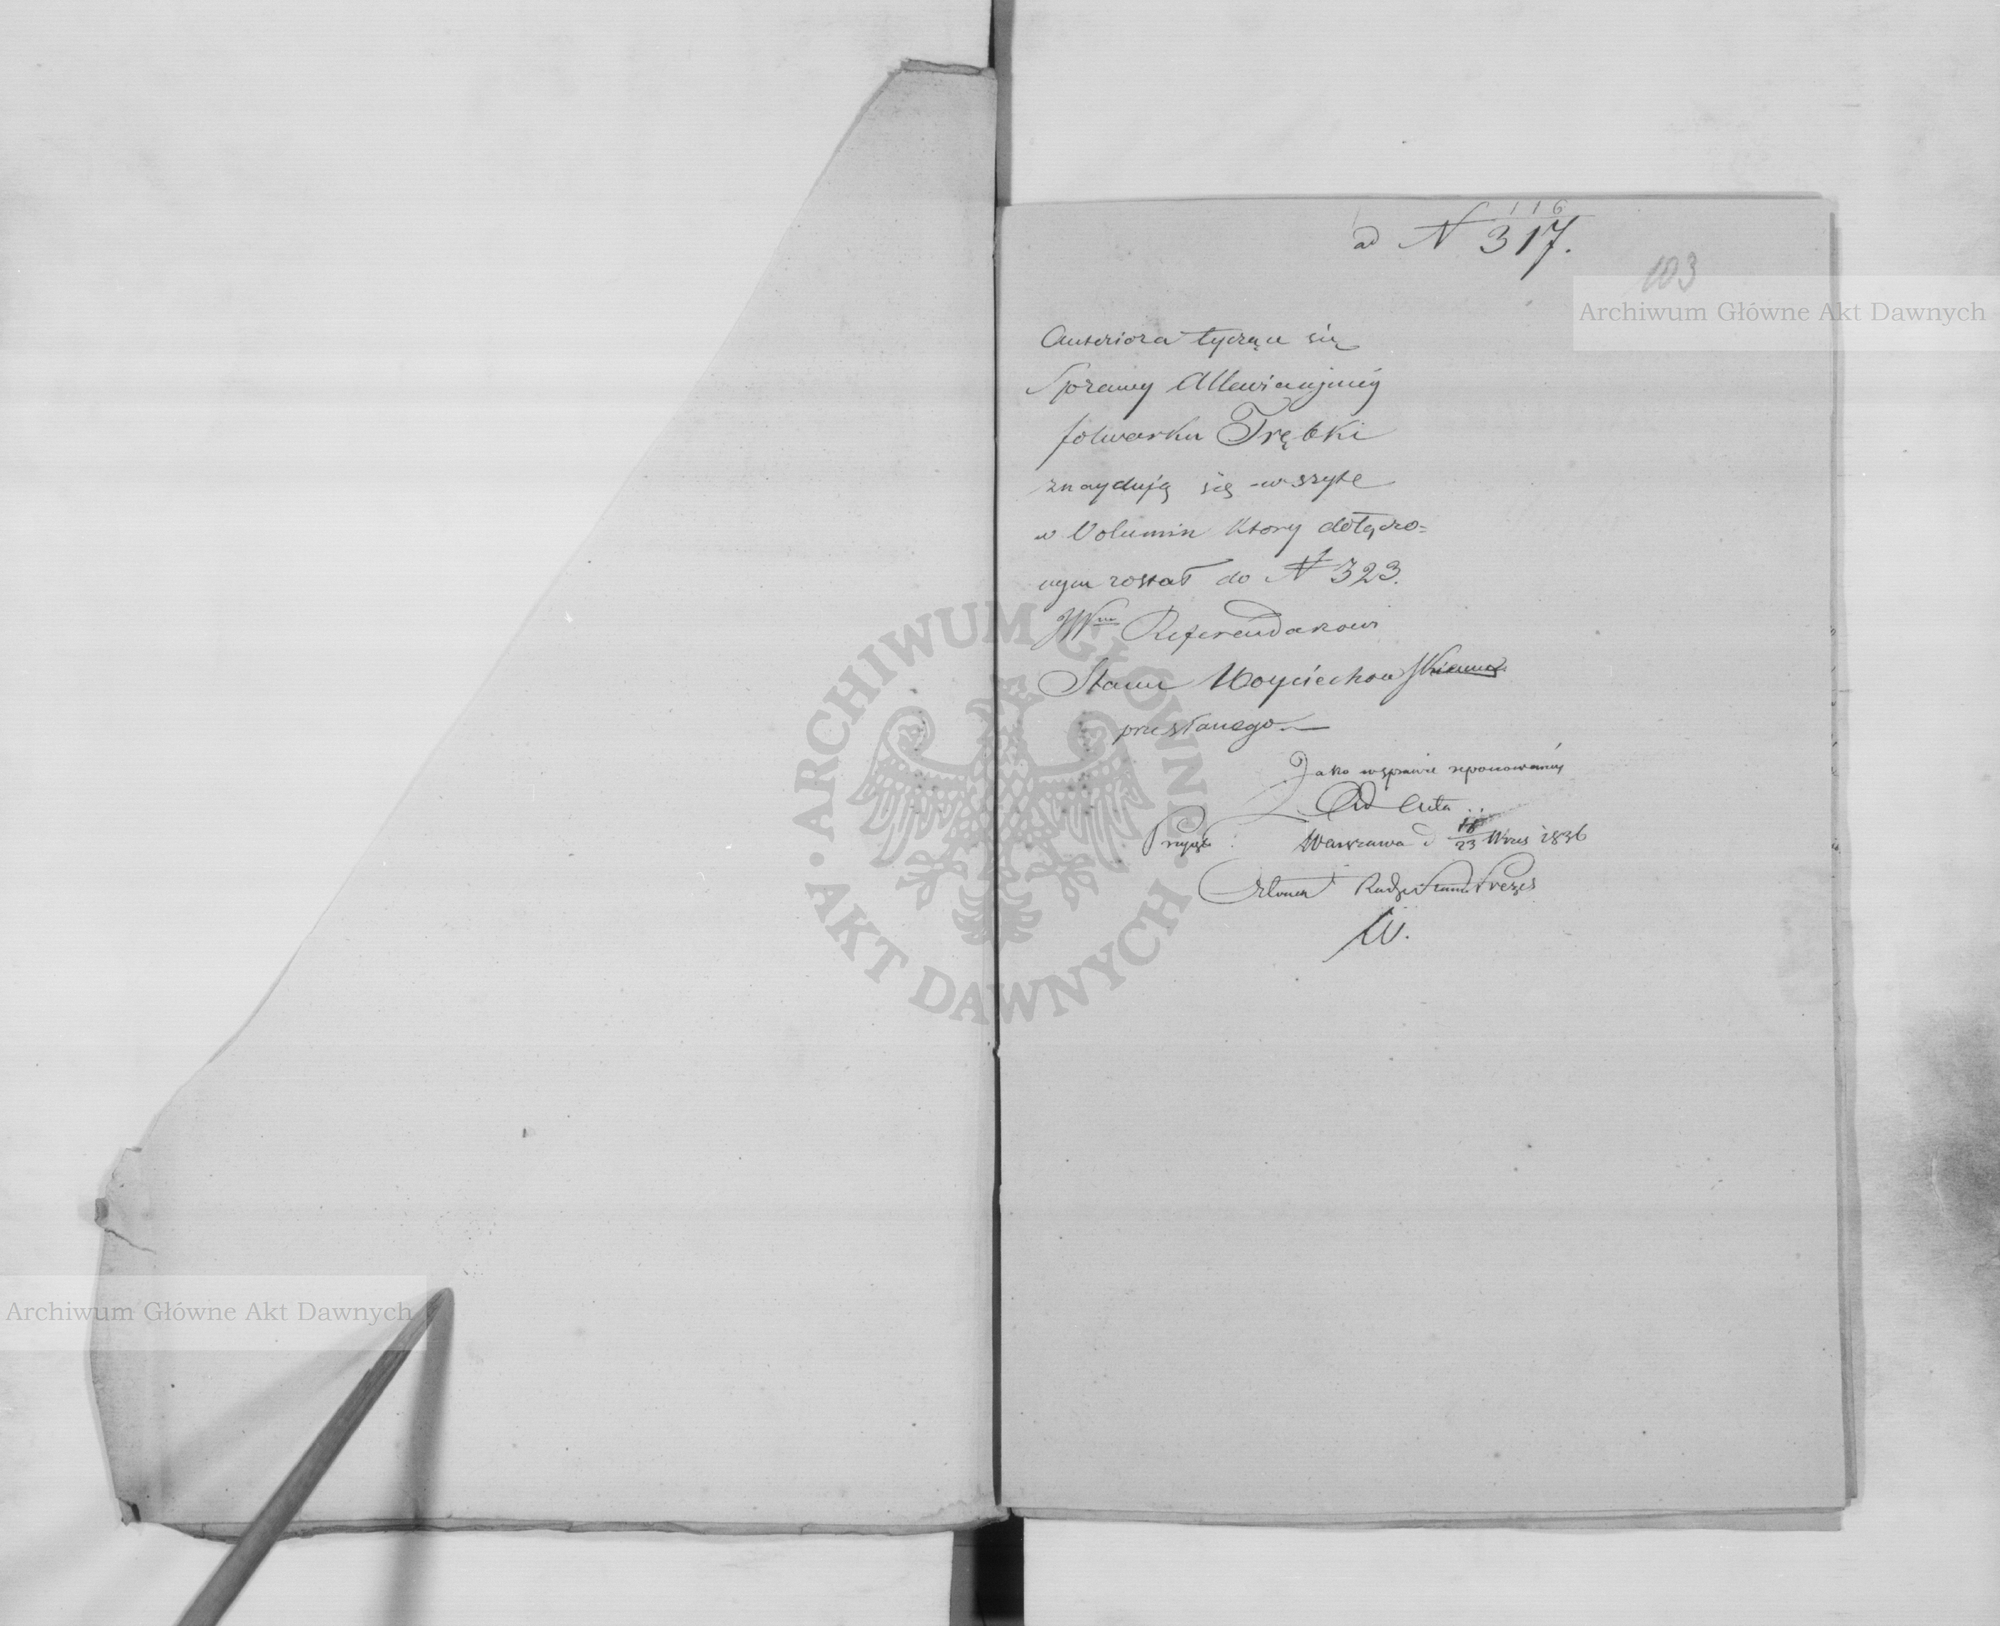 116
ad N 317.
103
Archiwum Główne Akt Dawnych
Anteriora tyczące się
Sprawy Allewiacyjnéy
folwarku Trębki
znaydują się wszyte
w Volumin który dołączo=
nym został do N 323.
JWmu Referendarzowi
Stanu Woyciechowskiemu
przesłanego
Jako w sprawie reponowanéy
Ad Acta
Warszawa d 23 Wrześ 1836
Członek Rady Stanu Prezes
W.
ARCHIWUM GŁÓWNE AKT DAWNYCH
Archiwum Główne Akt Dawnych